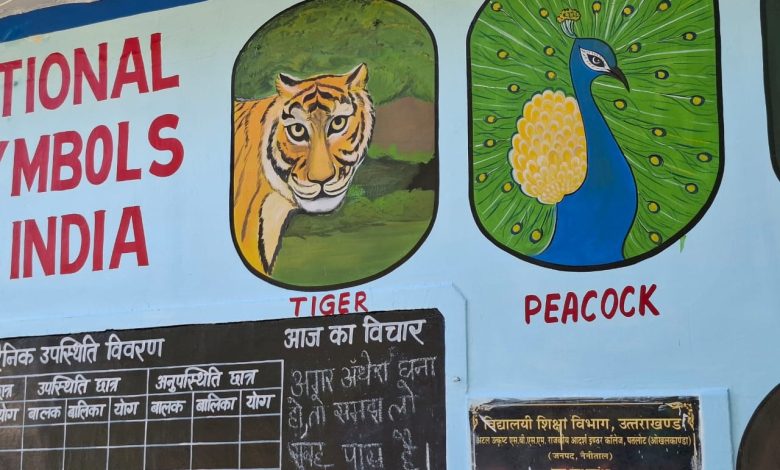 TIONAL
YMBOLS
INDIA
TIGER
PEACOCK
दैनिक उपस्थिति विवरण
उपस्थिति छात्र अनुपस्थिति छात्र
योग बालक बालिका योग बालक बालिका योग
आज का विचार
अगर अंधेरा घना
हो, तो समझ लो
सुबह पास है।
विद्यालयी शिक्षा विभाग, उत्तराखण्ड
अटल उत्कृष्ट एस.बी.एस.एम. राजकीय आदर्श इण्टर कॉलेज, पतलोट (ओखलकाण्डा)
(जनपद, नैनीताल)